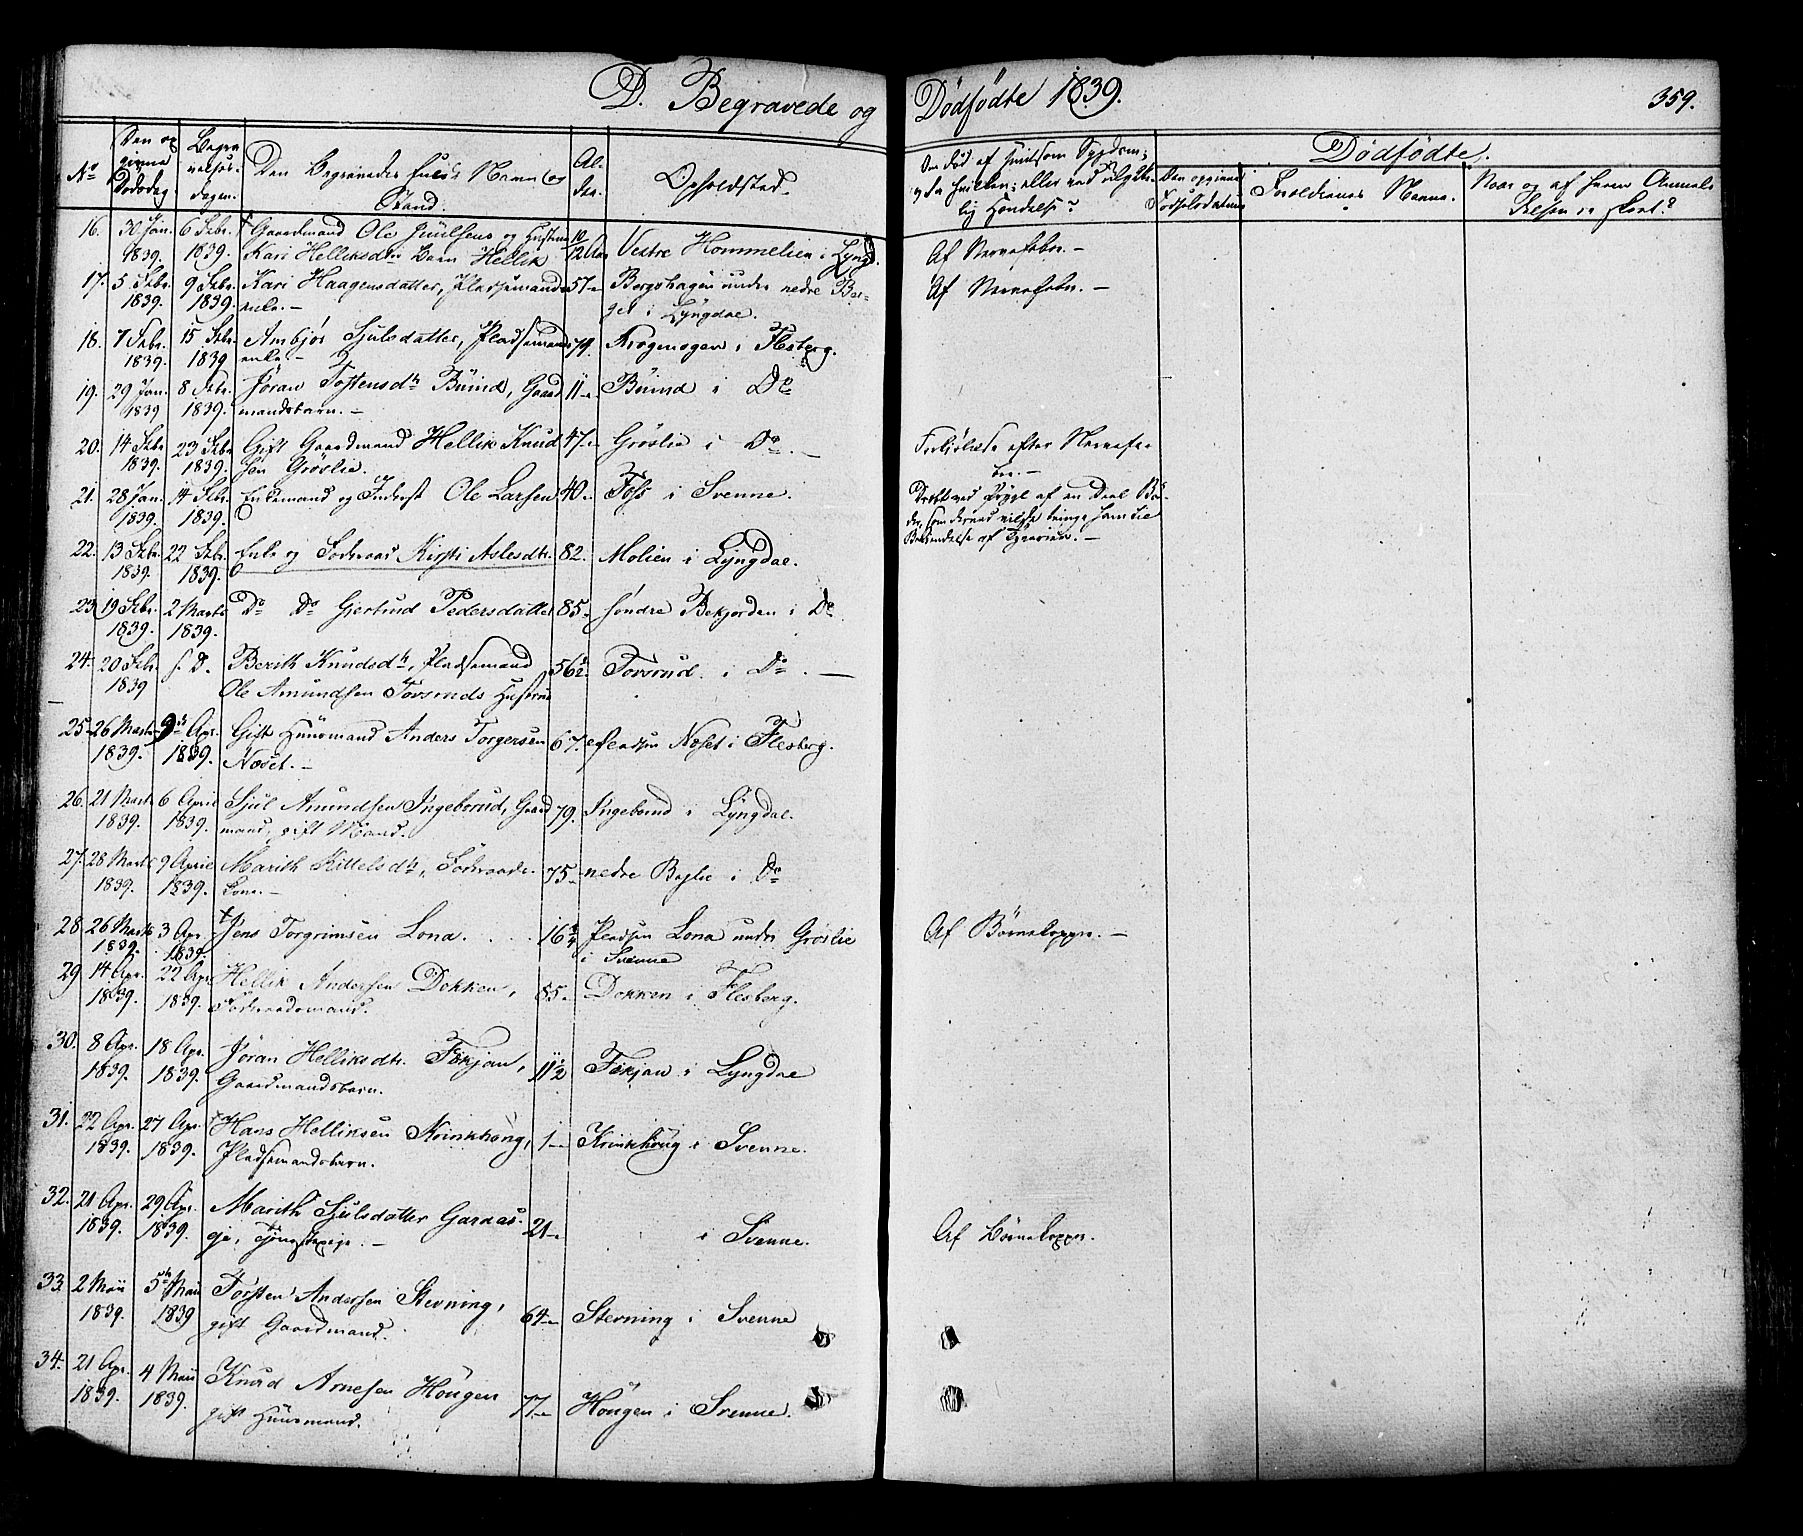 D. Begravede og Dödfödte 1839.
359.
No
Den opgivne Dödsdag.
Begravelsesdagen.
Den Begravedes fulde Navn og Stand.
Alder.
Opholdsted.
Dödfödte.
Forældrenes Navne.
16. 30 Jan. 1839. 6 Febr. 1839. Gaardmand Ole Juulsens og Hustrue
Kari Helliksdtr Barn Hellik 10/12 Aar Vestre Hommelien i Lyngd. Af Nervefeber. -
17. 5 Febr. 1839. 9 Febr. 1839. Kari Haagensdatter, Pladsemands
enke. - 57 - Bergshagen under nedre Ber-
get i Lyngdal. Af Nervefeber. -
18. 7 Febr. 1839. 15 Febr. 1839 Ambjör Sjulsdatter, Pladsemands
enke - 79. Krogmogen i Flesberg.
19. 29 Jan. 1839 8 Febr. 1839. Jöran Tostensdtr Buind, Gaard
mandsbarn. - 11 - Buind i Do
20. 14 Febr. 1839. 23 Febr. 1839. Gift Gaardmand Hellik Knud
sen Gröslie. 47 - Gröslie i Do. - Forkjölelse efter Nervefe-
ber. -
21. 28 Jan. 1839. 14 Febr. 1839. Enkemand og Inderst Ole Larsen 40 - Foss i Svenne.
Dræbt ved Prygl af en Deel Bön-
der, som derved vilde bringe ham til
Bekjendelse af Tyverier. -
22. 13 Febr. 1839. 22 Febr. 1839. Enke og Föderaad Kirsti Aslesdtr. 82. Molien i Lyngdal.
23. 19 Febr. 1839. 2 Marts 1839. Do Do Gjertrud Pedersdatter 85 - söndre Bekjorden i Do
24. 20 Febr. 1839 s. D. Berith Knudsdtr, Pladsemand
Ole Amundsen Torsruds Hustrue 56 1/2. Torsrud i Do. -
25 - 26 Marts 1839. 9de Apr. 1839. Gift Huusmand Anders Torgersen
Næset. - 67. Pladsen Næset i Flesberg.
26. 21 Marts 1839. 6 April 1839. Sjul Amundsen Ingeborud, Gaard
mand, gift Mand. 79. Ingeborud i Lyngdal.
27. 28 Marts 1839. 9 April 1839. Marith Kittelsdtr, Föderaads-
Kone. - 75 - nedre Bejlie i Do
28. 26 Marts 1839. 3 Apr. 1839. Jens Torgrimsen Lona. . . . . Pladsen Lona under Gröslie
i Svenne Af Börnekopper. -
29 14 Apr. 1839. 22 Apr. 1839. Hellik Andersen Dokken,
Föderaadsmand. 85 - Dokken i Flesberg.
30. 8 Apr. 1839. 18 Apr. 1839. Jöran Helliksdtr. Fekjan,
Gaardmandsbarn. 11 1/2 Fekjan i Lyngdal
31. 22 Apr. 1839. 27 Apr. 1839. Hans Helliksen Krinkhoug,
Pladsemandsbarn. 1 - Krinkhoug i Svenne.
32. 21 Apr. 1839. 29 Apr. 1839. Marith Sjulsdatter Gardas-
gje, Tjenestepige. - 21 - i Svenne. Af Börnekopper.
33. 2 Maii 1839. 5te Maii 1839 Torsten Andersen Stevning,
gift Gaardmand. 64 - Stevning i Svenne
34. 21 Apr. 1839. 4 Maii 1839. Knud Arnesen Hougen
gift Huusmand. 77 - Hougen i Svenne.